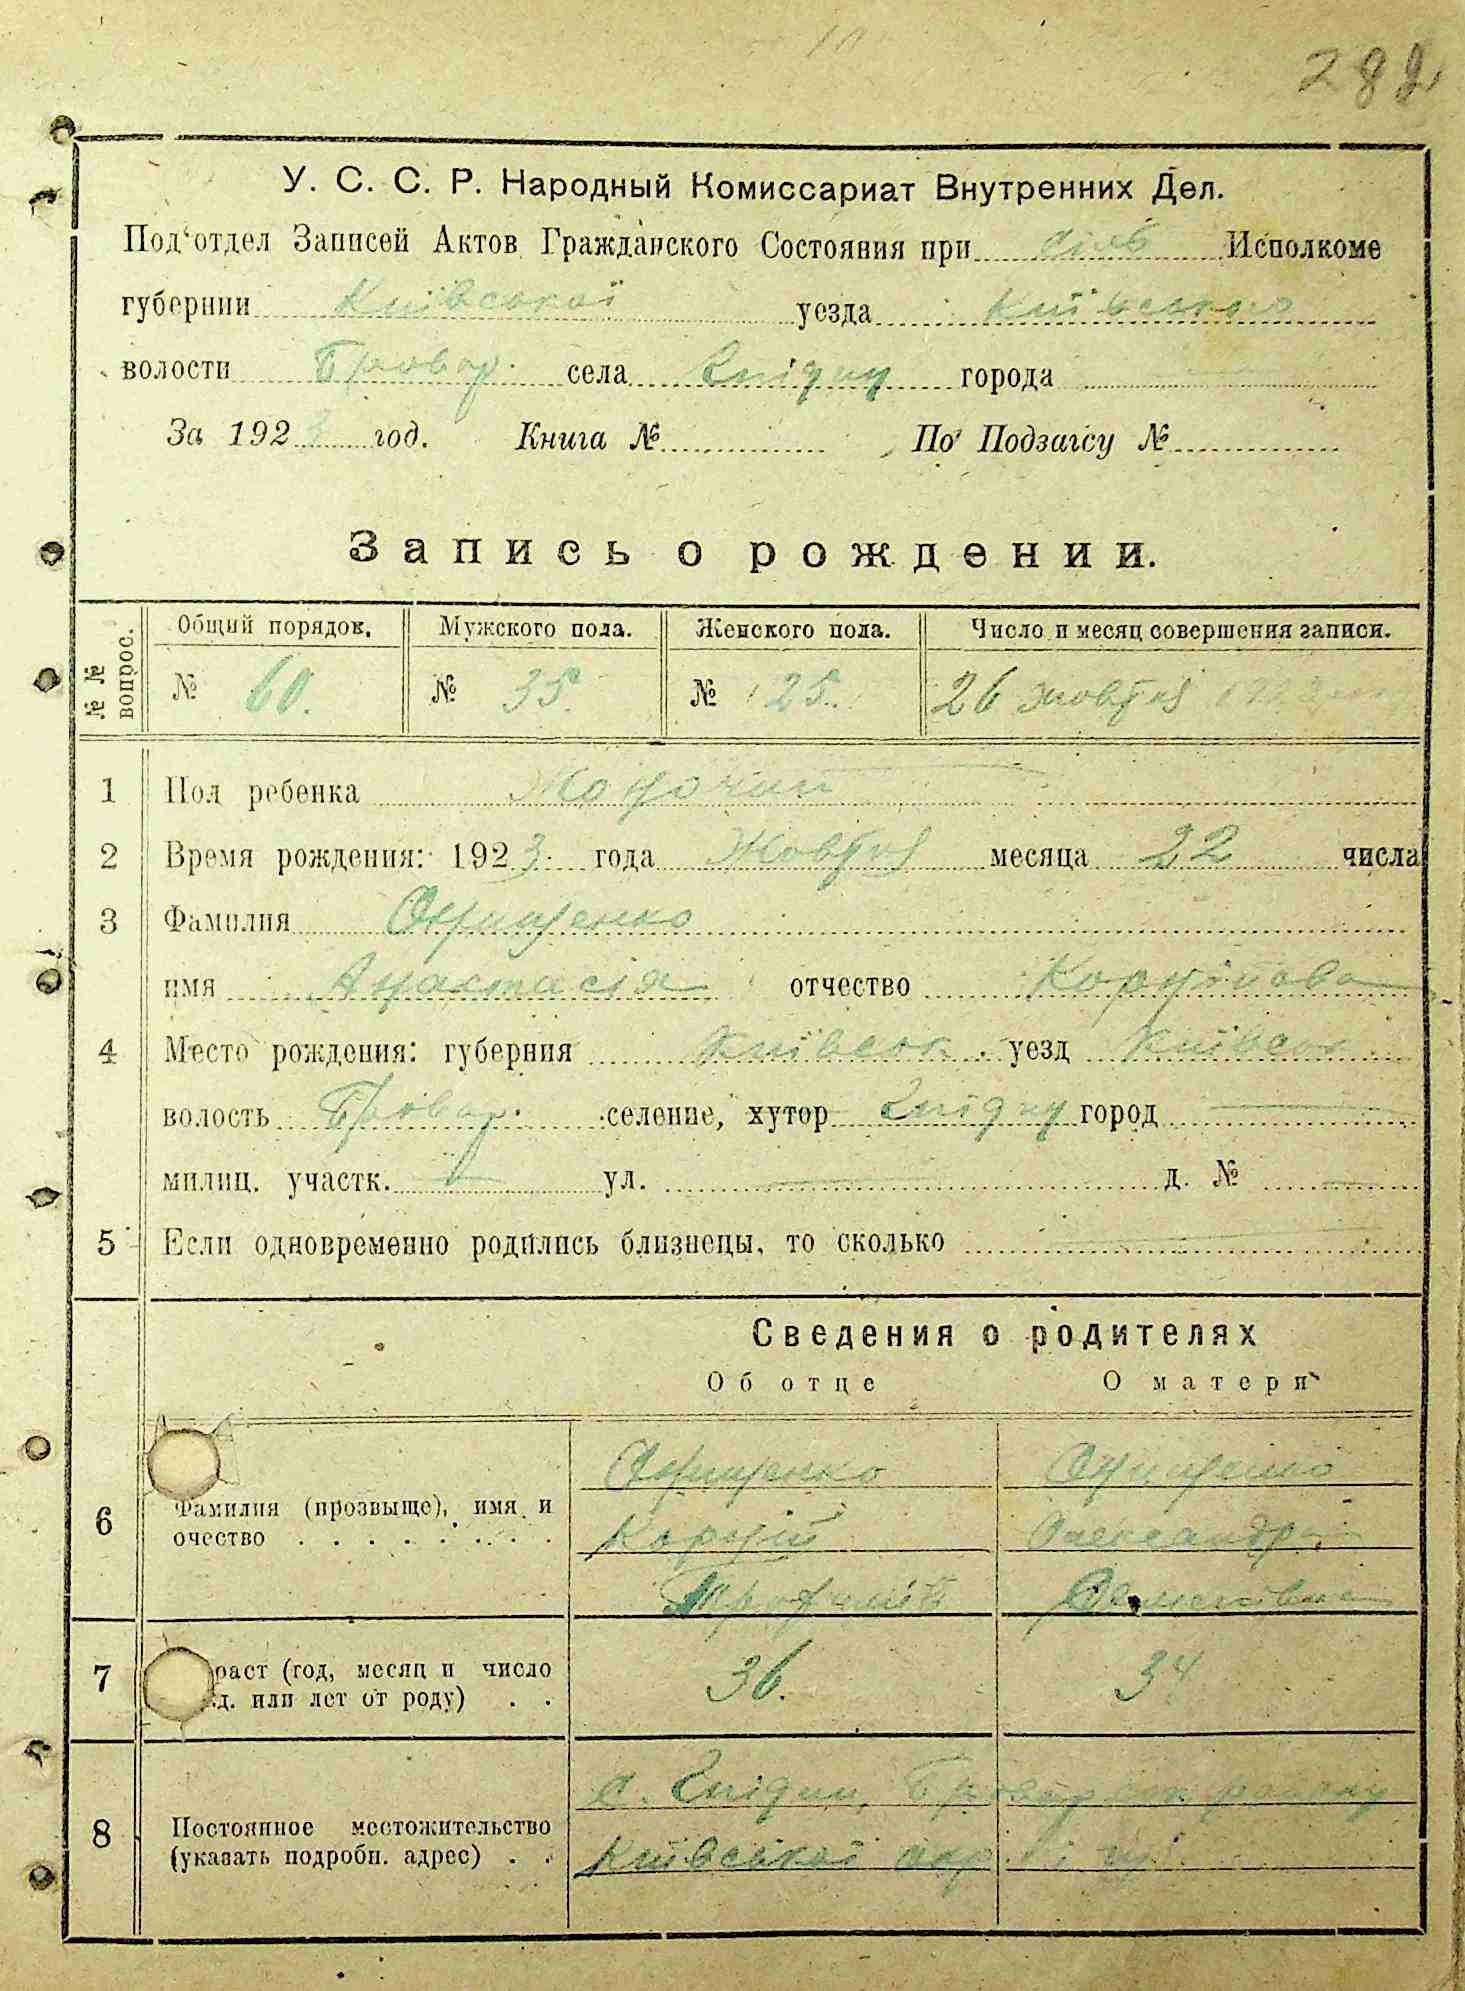 282
У. С. С. Р. Народный Комиссариат Внутренних Дел.
Под'отдел Записей Актов Гражданского Состояния при Сіль Исполкоме
губернии Київської уезда Київського
волости Бровар. села Гнідин города
За 192 год. Книга № По Подзагсу №
Запись о рождении.
№ № вопрос. Общий порядок. Мужского пола. Женского пола. Число и месяц совершения записи.
№ 60. № 35. № 25. 26 жовтня
1 Пол ребенка Жіночий
2 Время рождения: 1923 года Жовтня месяца 22 числа
3 Фамилия Онищенко
имя Анастасія отчество Корніїова
4 Место рождения: губерния Київськ. уезд Київськ.
волость Бровар. селение, хутор Гнідин город —
милиц. участк. — ул. — д. № —
5 Если одновременно родились близнецы, то сколько —
Сведения о родителях
Об отце О матери
6 Фамилия (прозвыще), имя и очество Онищенко Онищенко
Корній Олександра
Трофимів
7 раст (год, месяц и число
д. или лет от роду) 36. 34
8 Постоянное местожительство (указать подробн. адрес) с. Гнідин, Броварськ. району
Київської окр.